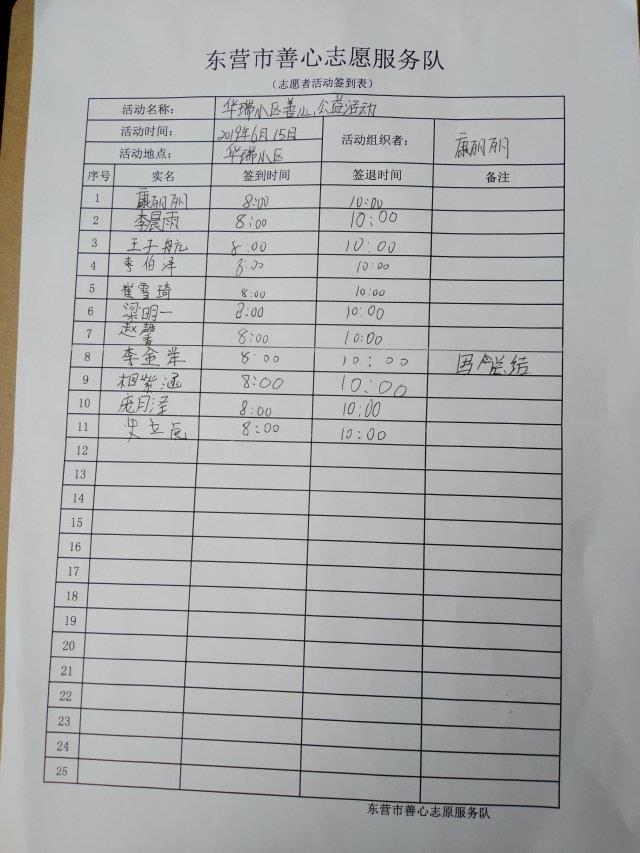 东营市善心志愿服务队
(志愿者活动签到表)
活动名称: 华瑞小区善心公益活动
活动时间: 2019年6月15日 活动组织者: 康丽丽
活动地点: 华瑞小区
序号 实名 签到时间 签退时间 备注
1 康丽丽 8:00 10:00
2 李晨雨 8:00 10:00
3 王子航 8:00 10:00
4 李伯泽 8:00 10:00
5 崔雪琦 8:00 10:00
6 梁明一 8:00 10:00
7 赵馨 8:00 10:00
8 李金 8:00 10:00 总结
9 相紫涵 8:00 10:00
10 庞月泽 8:00 10:00
11 史 8:00 10:00
12
13
14
15
16
17
18
19
20
21
22
23
24
25
东营市善心志愿服务队